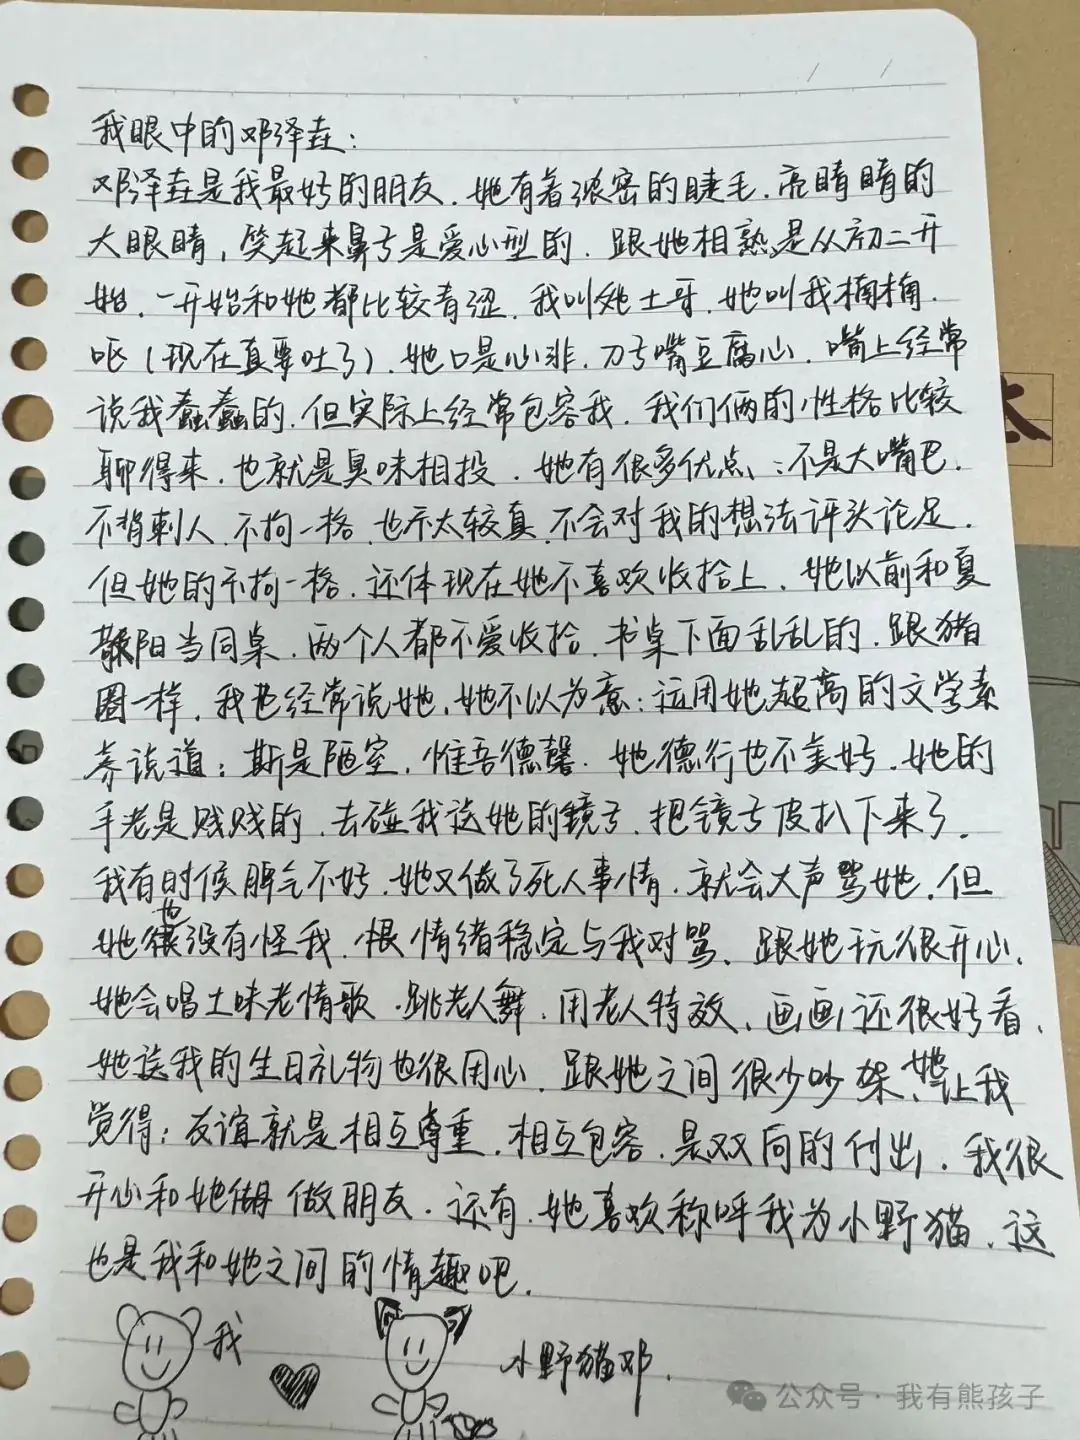 我眼中的邓泽垚：
邓泽垚是我最好的朋友．她有着浓密的睫毛．亮晴晴的
大眼睛，笑起来鼻子是爱心型的．跟她相熟是从初二开
始．一开始和她都比较青涩．我叫她土哥．她叫我楠楠．
呕（现在真要吐了）．她口是心非．刀子嘴豆腐心．嘴上经常
说我蠢蠢的．但实际上经常包容我．我们俩的性格比较
聊得来．也就是臭味相投．她有很多优点：不是大嘴巴．
不背刺人．不拘一格．也不太较真．不会对我的想法评头论足．
但她的不拘一格．还体现在她不喜欢收拾上．她以前和夏
阳当同桌．两个人都不爱收拾．书桌下面乱乱的．跟猪
圈一样．我也经常说她．她不以为意：运用她超高的文学素
养说道：斯是陋室，惟吾德馨．她德行也不美好．她的
手老是贱贱的．去碰我送她的镜子．把镜子皮扒下来了．
我有时候脾气不好．她又做了死人事情．就会大声骂她．但
她也没有怪我．很情绪稳定与我对骂．跟她玩很开心．
她会唱土味老情歌．跳老人舞．用老人特效、画画还很好看．
她送我的生日礼物也很用心．跟她之间很少吵架、她让我
觉得：友谊就是相互尊重．相互包容．是双向的付出．我很
开心和她做朋友．还有．她喜欢称呼我为小野猫．这
也是我和她之间的情趣吧．
我
小野猫邓．
公众号·我有熊孩子